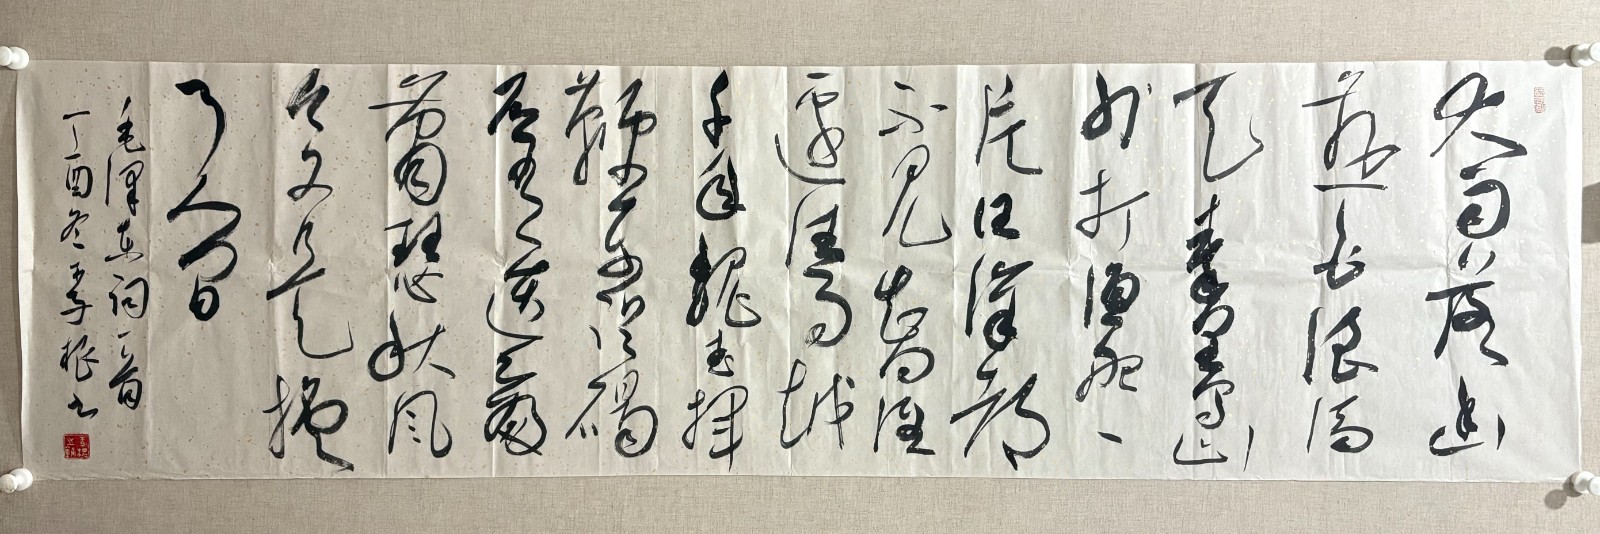 大雨落幽
燕白浪滔
天秦皇岛
外打渔船一
片汪洋都
不见知向谁
边往事越
千年魏武挥
鞭东临碣
石有遗篇
萧瑟秋风
今又是换
了人间
毛泽东词一首
丁酉冬李根书